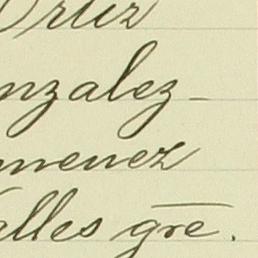 Ortiz
onzalez-
imenez
alles gre.